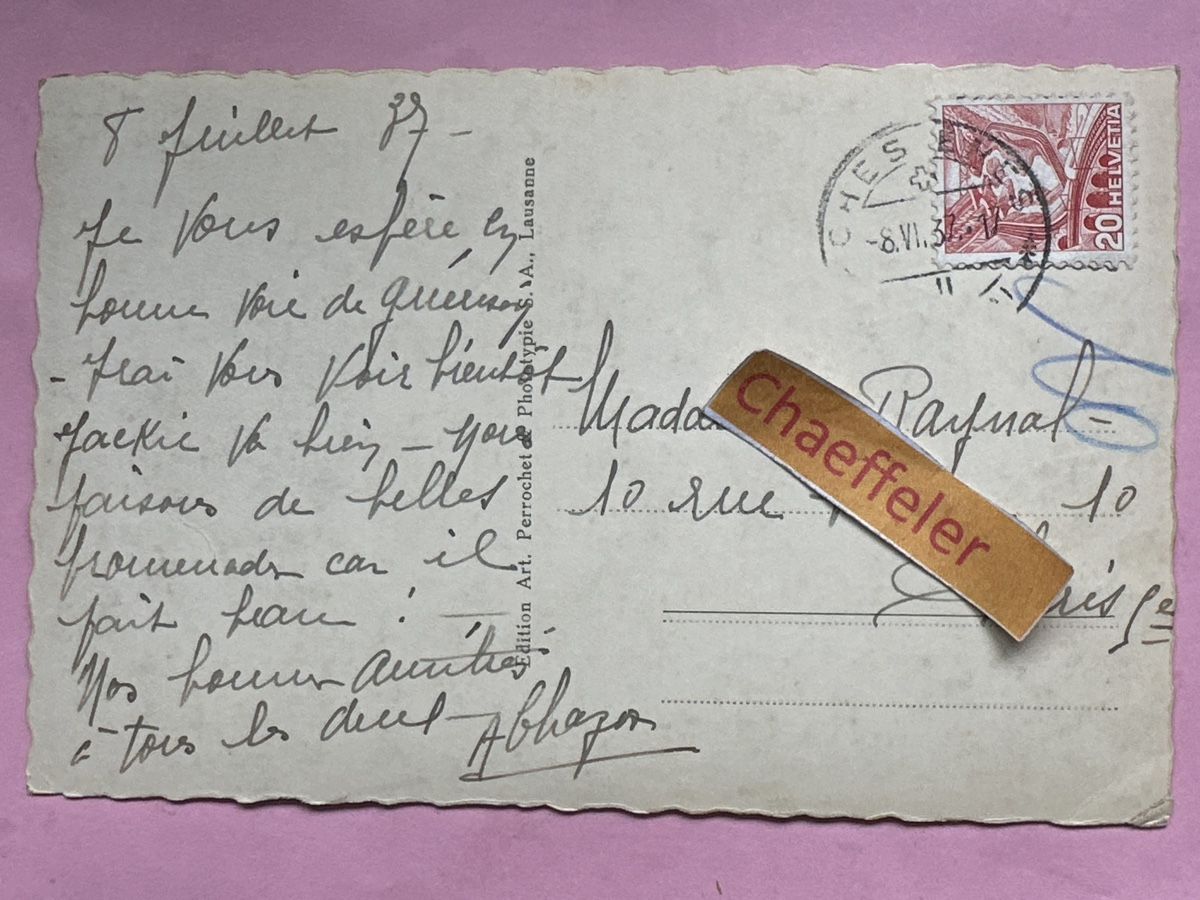 8 Juillet 37 -
Je vous espère en
bonne voie de guérison
- Irai vous voir bientôt
Jackie va bien - nous
faisons de belles
promenades car il
fait beau !
Nos bonnes amitiés
à tous les deux -
Edition Art. Perrochet & Phototypie S. A., Lausanne
CHESIÈRES
-8.VI.37.-17
20 HELVETIA
Raynal -
10 rue 10
Chaeffeler